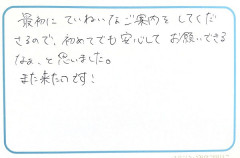 最初に ていねいなご案内を してくだ
さるので、初めてでも安心して お願いできる
なぁ、と思いました。
また来たいです！